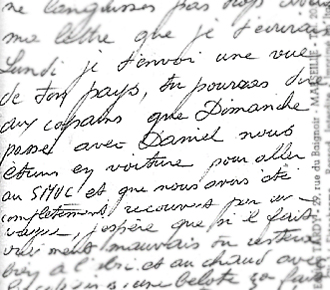 ne languisses pas trop avec
ma lettre que je t'écrirais
Lundi je t'envoi une vue
de ton pays, tu pourras dire
aux copains que Dimanche
passé avec Daniel nous
étions en voiture pour aller
au SMUC et que nous avons été
complètement recouvert par
vagues, j'espère que si il fais
vraiment mauvais tu resteras
bien à l'abri et au chaud avec
une belote ça
TARDY - 29, rue du Baignoir - MARSEILLE